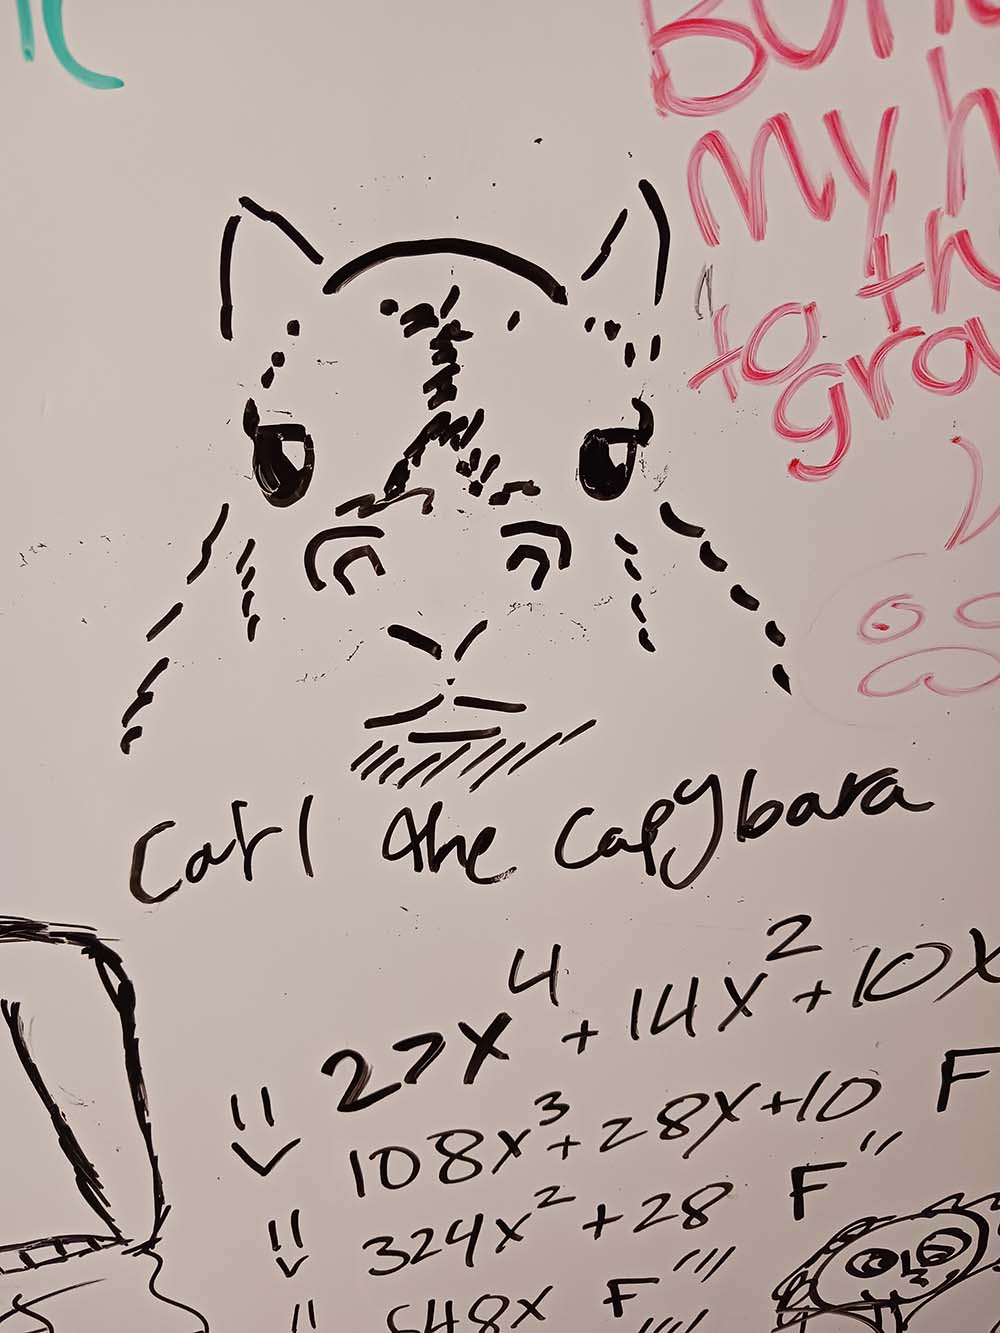 my
to th
grow
Carl the Capybara
27x⁴ + 14x² + 10x
108x³ + 28x + 10 F
324x² + 28 F''
648x F'''